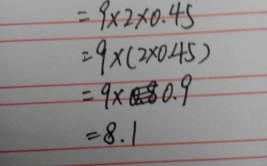 =9×2×0.45
=9×(2×0.45)
=9×0.9
=8.1